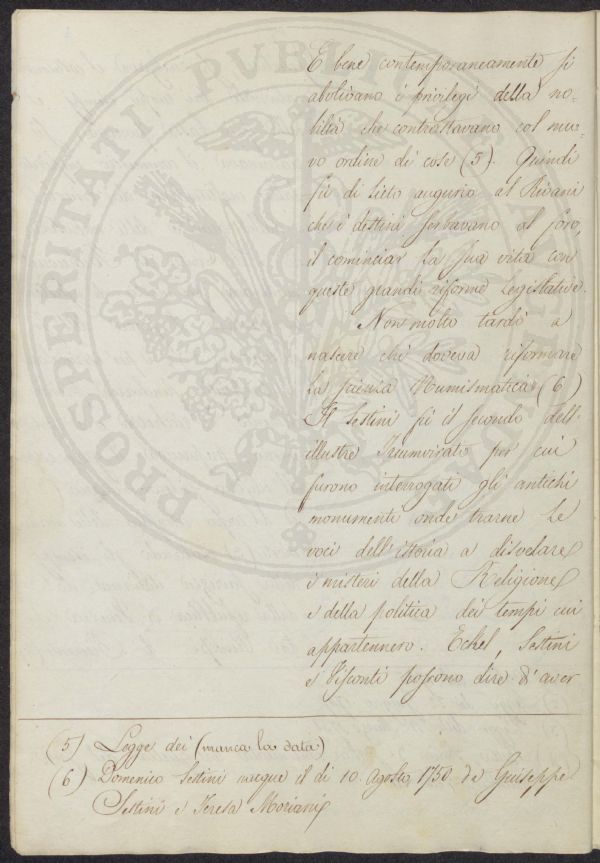 E bene contemporaneamente si
abolivano i privilegi della no=
biltà che contrastavano col nuo=
vo ordine di cose (5). Quindi
fu di lieto augurio al Rivani
che i destini serbavano al foro,
il cominciar la sua vita con
queste grandi riforme Legislative.
Non molto tardò a
nascere chi doveva riformare
la scienza Numismatica (6)
Il Sestini fu il secondo dell'
illustre Triumvirato per cui
furono interrogati gli antichi
monumenti onde trarne le
voci dell'istoria a disvelare
i misteri della Religione
e della politica dei tempi cui
appartennero. Eckel, Sestini
e Visconti possono dire d'aver
(5) Legge dei (manca la data)
(6) Domenico Sestini nacque il di 10. Agosto 1750 da Guiseppe
Sestini e Teresa Moriani
PROSPERITATI PUBLICAE